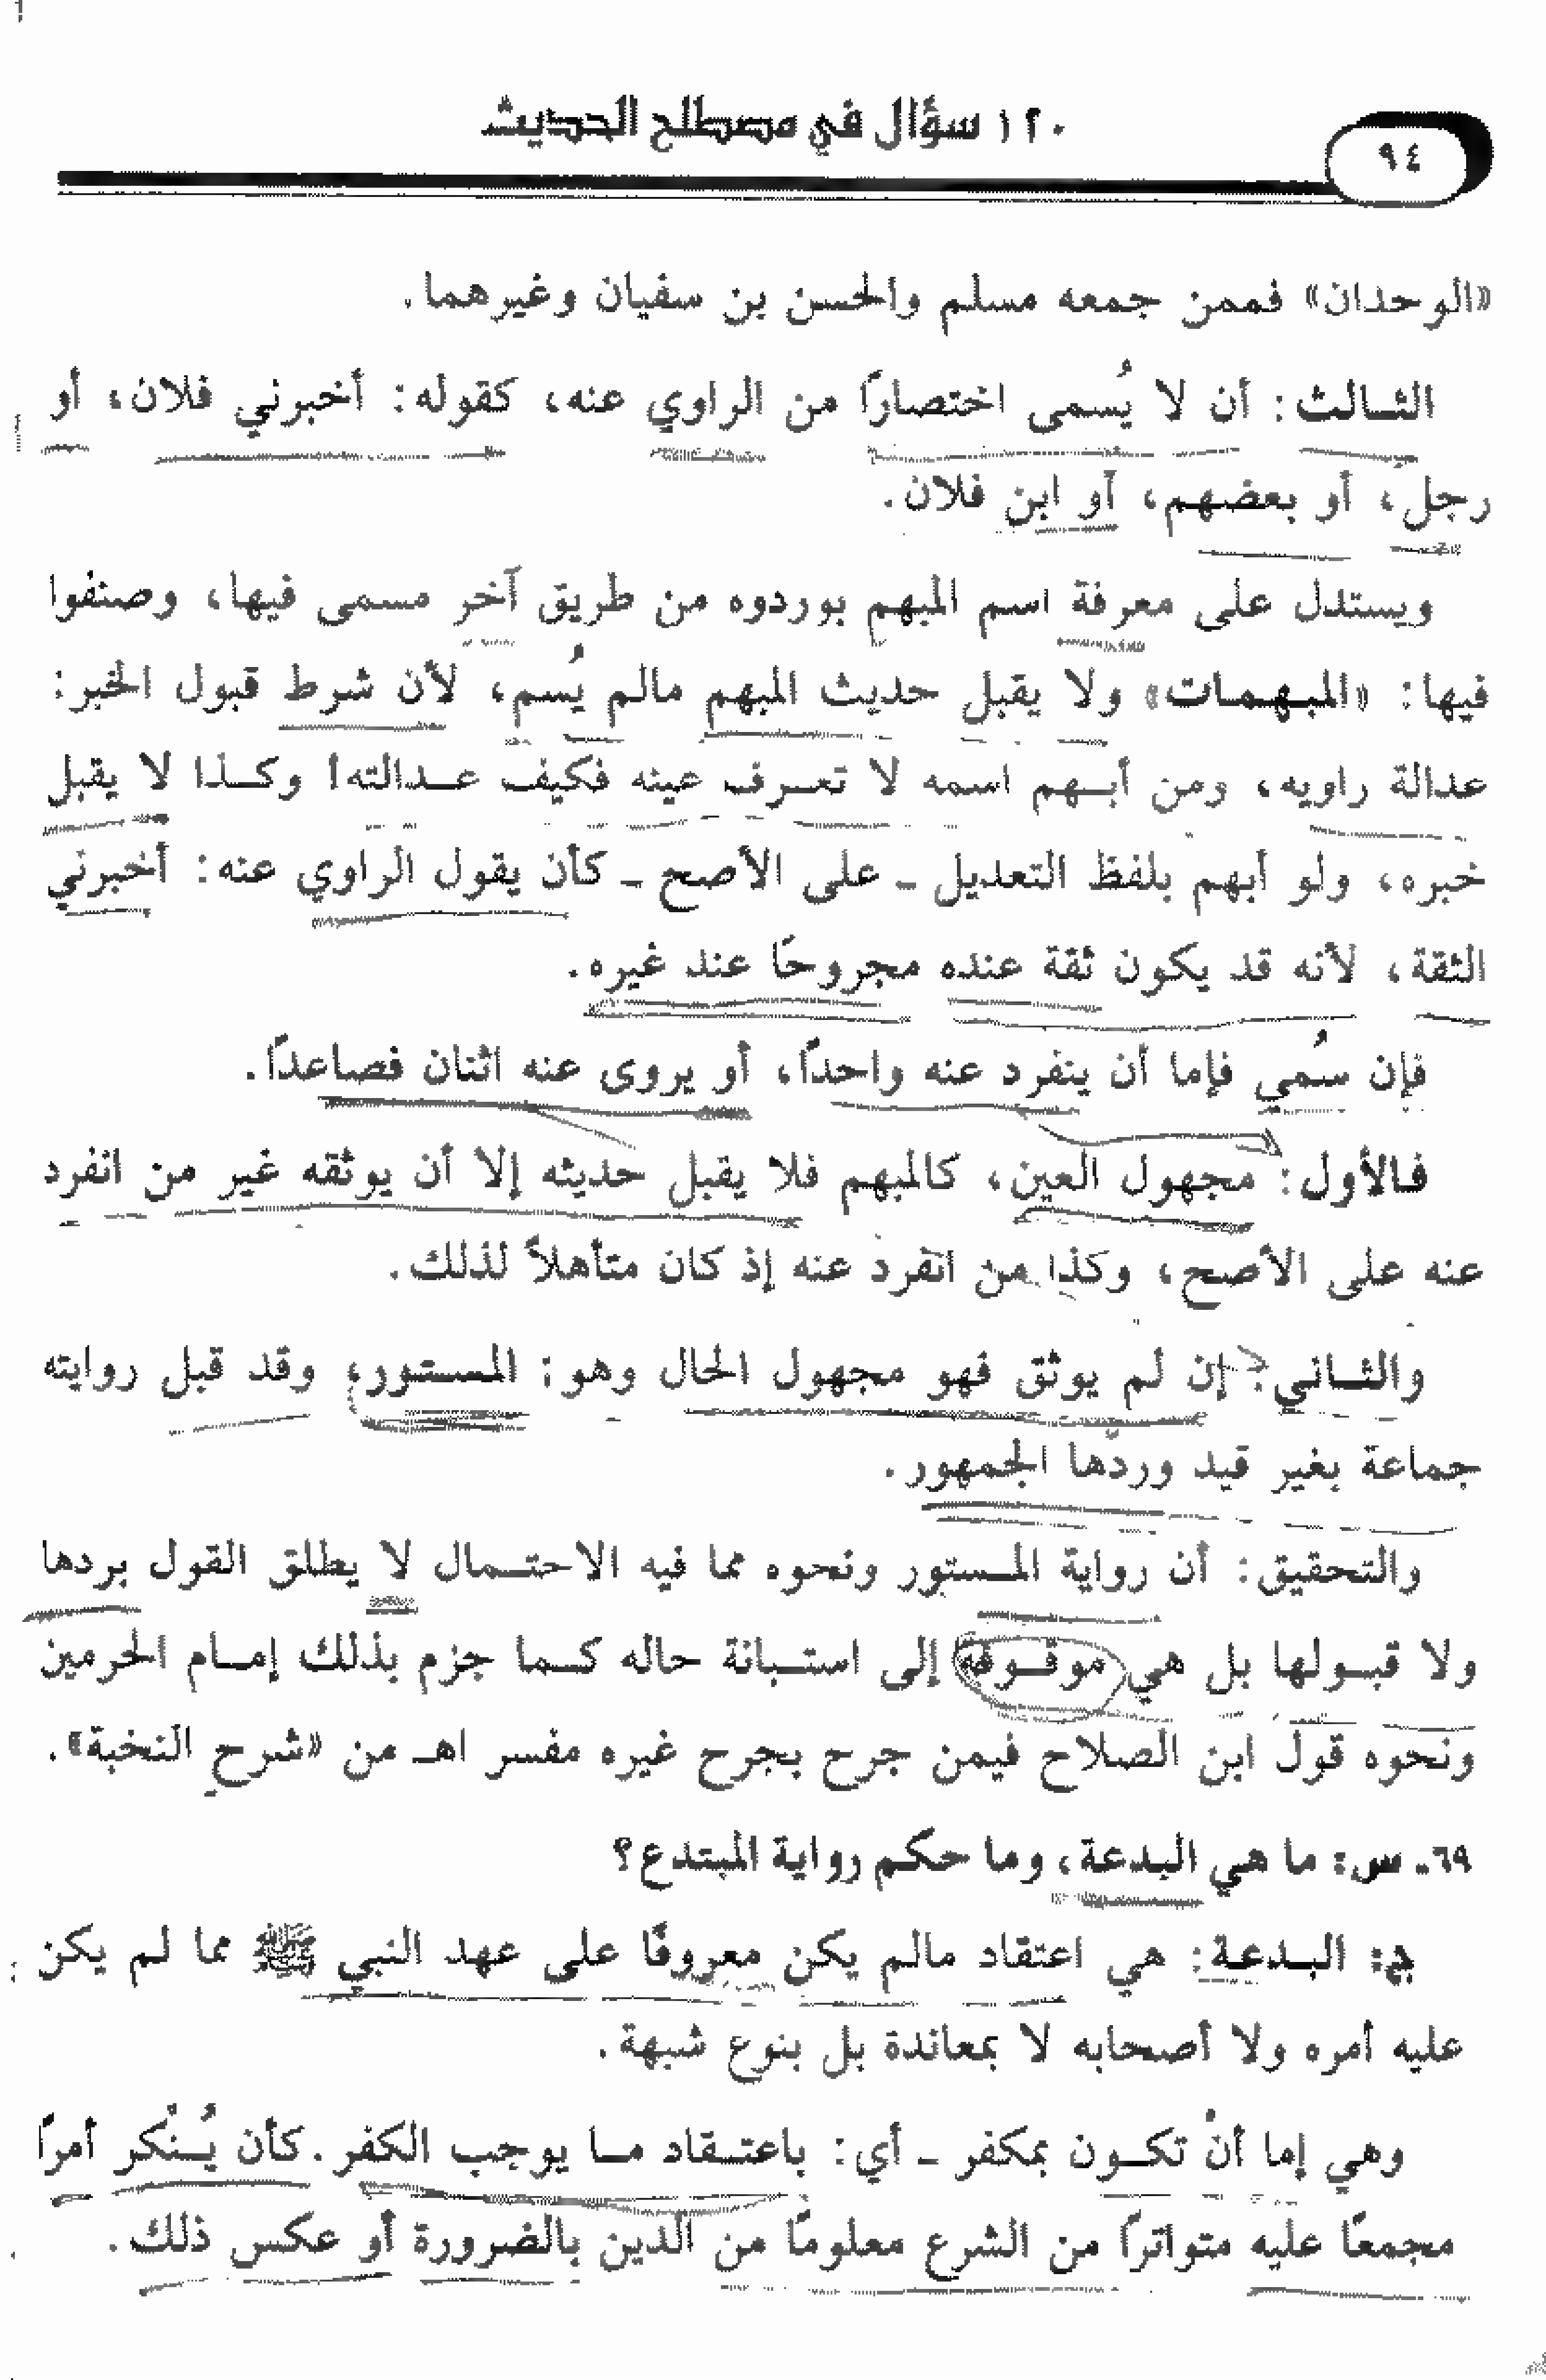 ١٢٠ سؤال في مصطلح الحديث
٩٤
«الوحدان» فممن جمعه مسلم والحسن بن سفيان وغيرهما.
الثالث: أن لا يُسمى اختصارًا من الراوي عنه، كقوله: أخبرني فلان، أو
رجل، أو بعضهم، أو ابن فلان.
ويستدل على معرفة اسم المبهم بوروده من طريق آخر مسمى فيها، وصنفوا
فيها: «المبهمات» ولا يقبل حديث المبهم مالم يُسم، لأن شرط قبول الخبر:
عدالة راويه، ومن أبهم اسمه لا تعرف عينه فكيف عدالته! وكذا لا يقبل
خبره، ولو أبهم بلفظ التعديل - على الأصح - كأن يقول الراوي عنه: أخبرني
الثقة، لأنه قد يكون ثقة عنده مجروحًا عند غيره.
فإن سُمي فإما أن ينفرد عنه واحدًا، أو يروى عنه اثنان فصاعدًا.
فالأول: مجهول العين، كالمبهم فلا يقبل حديثه إلا أن يوثقه غير من انفرد
عنه على الأصح، وكذا من انفرد عنه إذ كان متأهلاً لذلك.
والثاني: إن لم يوثق فهو مجهول الحال وهو: المستور، وقد قبل روايته
جماعة بغير قيد وردّها الجمهور.
والتحقيق: أن رواية المستور ونحوه مما فيه الاحتمال لا يطلق القول بردها
ولا قبولها بل هي موقوفة إلى استبانة حاله كما جزم بذلك إمام الحرمين
ونحوه قول ابن الصلاح فيمن جرح بجرح غيره مفسر اهـ من «شرح النخبة».
٦٩- س: ما هي البدعة، وما حكم رواية المبتدع؟
ج: البدعة: هي اعتقاد مالم يكن معروفًا على عهد النبي ﷺ مما لم يكن
عليه أمره ولا أصحابه لا بمعاندة بل بنوع شبهة.
وهي إما أنْ تكون بمكفر - أي: باعتقاد ما يوجب الكفر. كأن يُنْكر أمرًا
مجمعًا عليه متواترًا من الشرع معلومًا من الدين بالضرورة أو عكس ذلك.